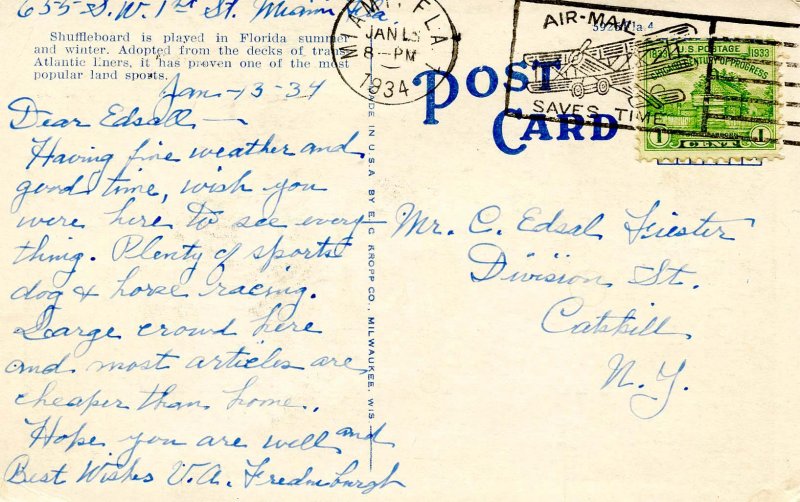 655 S.W. 1st St. Miami Fla.
Shuffleboard is played in Florida summer
and winter. Adopted from the decks of trans-
Atlantic liners, it has proven one of the most
popular land sports.
Jan-13-34
Dear Edsall—
Having fine weather and
good time, wish you
were here to see every-
thing. Plenty of sports
dog & horse racing.
Large crowd here
and most articles are
cheaper than home.
Hope you are well and
Best Wishes V.A. Fredenburgh
MADE IN U.S.A. BY E. C. KROPP CO., MILWAUKEE, WIS.
MIAMI, FLA.
JAN 13
8-PM
1934
AIR-MAIL
SAVES TIME
POST
CARD
U.S. POSTAGE
1833 1933
CENTURY OF PROGRESS
1 CENT 1
Mr. C. Edsal Fiester
Division St.
Catskill
N.Y.